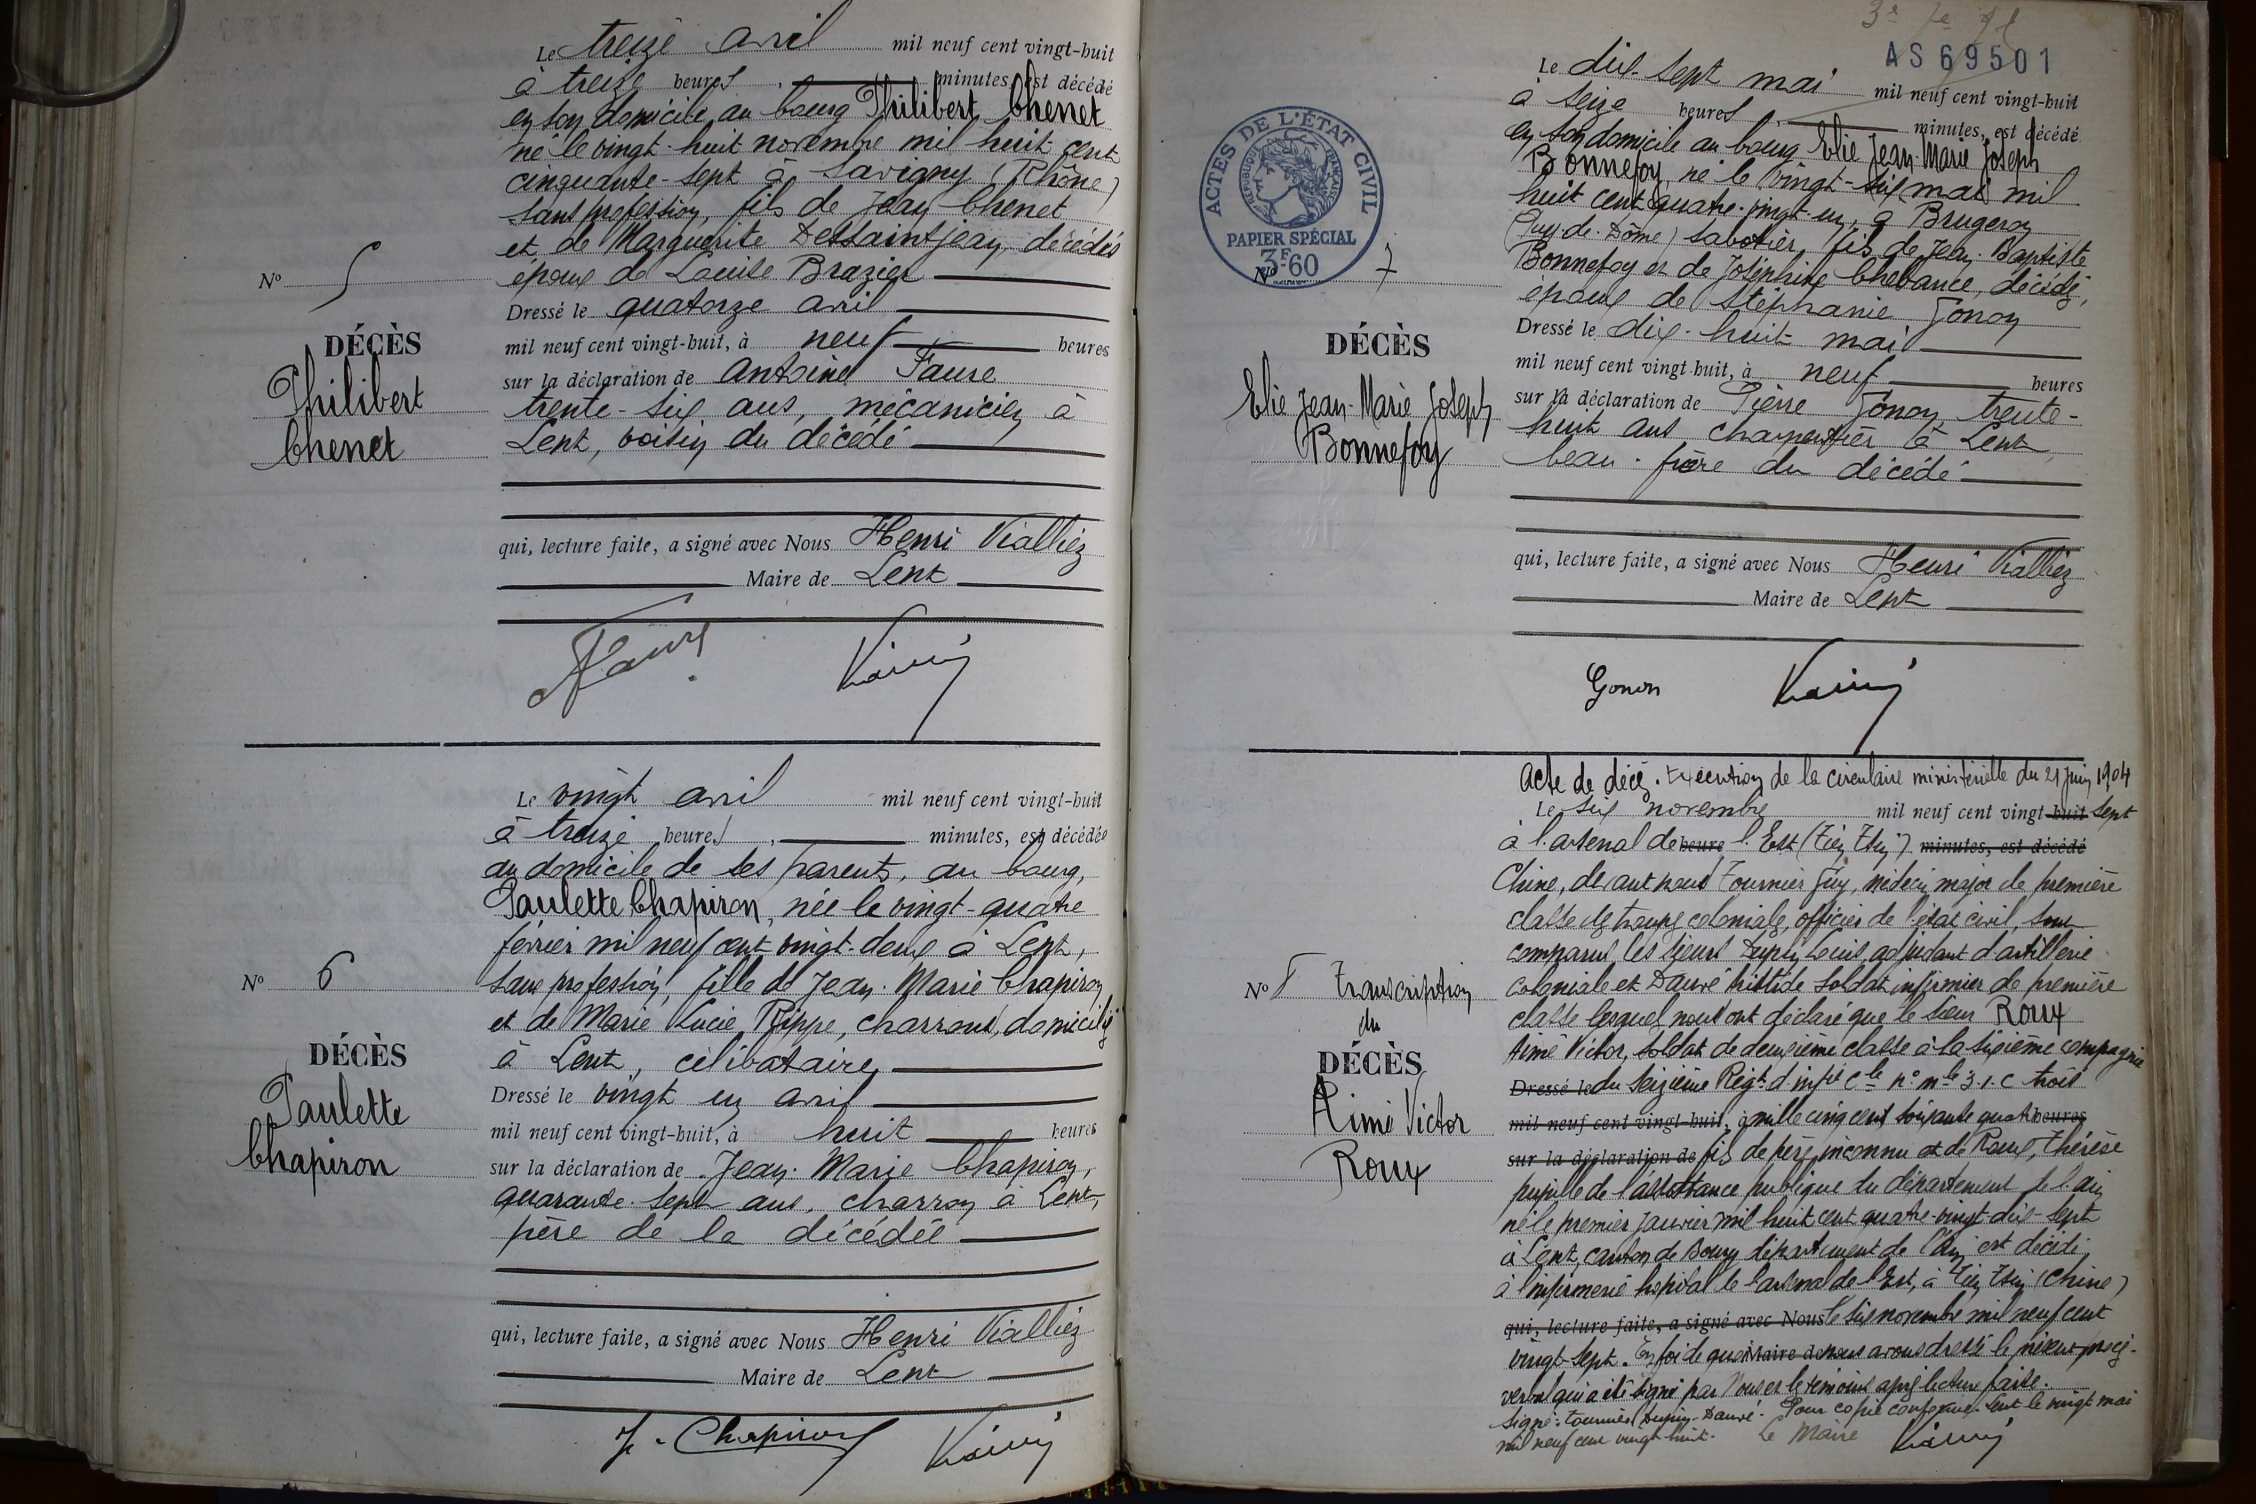 Le treize avril mil neuf cent vingt-huit
à treize heures, minutes, est décédé
en son domicile au bourg Philibert Chenet
né le vingt-huit novembre mil huit cent
cinquante-sept à Savigny (Rhône)
sans profession, fils de Jean Chenet
et de Marguerite Dessaintjean, décédés
époux de Louise Brazier
Dressé le quatorze avril
mil neuf cent vingt-huit, à neuf heures
sur la déclaration de Antoine Faure
trente-six ans, mécanicien à
Lent, voisin du décédé
qui, lecture faite, a signé avec Nous Henri Vialliez
Maire de Lent
Faure
No 5
DÉCÈS
Philibert
Chenet
Le vingt avril mil neuf cent vingt-huit
à treize heures, minutes, est décédée
au domicile de ses parents, au bourg,
Paulette Chapiron, née le vingt-quatre
février mil neuf cent vingt-deux à Lent,
sans profession, fille de Jean-Marie Chapiron
et de Marie Lucie Rippe, charrons, domiciliés
à Lent, célibataire
Dressé le vingt un avril
mil neuf cent vingt-huit, à huit heures
sur la déclaration de Jean-Marie Chapiron,
quarante-sept ans, charron à Lent,
père de la décédée
qui, lecture faite, a signé avec Nous Henri Vialliez
Maire de Lent
J. Chapiron
No 6
DÉCÈS
Paulette
Chapiron
AS 69501
ACTES DE L'ÉTAT CIVIL
RÉPUBLIQUE FRANÇAISE
PAPIER SPÉCIAL
3F.60
Le dix-sept mai mil neuf cent vingt-huit
à seize heures, minutes, est décédé
en son domicile au bourg Elie Jean-Marie Joseph
Bonnefoy, né le vingt-six mai mil
huit cent quatre-vingt-un, à Brugeron
(Puy-de-Dôme) sabotier, fils de Jean-Baptiste
Bonnefoy et de Joséphine Chebance, décédés,
époux de Stéphanie Gonon
Dressé le dix-huit mai
mil neuf cent vingt-huit, à neuf heures
sur la déclaration de Pierre Gonon, trente-
huit ans charpentier à Lent,
beau-frère du décédé
qui, lecture faite, a signé avec Nous Henri Vialliez
Maire de Lent
Gonon
No 7
DÉCÈS
Elie Jean-Marie Joseph
Bonnefoy
Acte de décès. Exécution de la circulaire ministérielle du 21 juin 1904
Le six novembre mil neuf cent vingt huit sept
à l'arsenal de heure l'Est (Tien Tsin) minutes, est décédé
Chine, devant nous Fournier Guy, médecin major de première
classe des troupes coloniales, officier de l'état civil, sont
comparus les sieurs Dupuy Louis, adjudant d'artillerie
coloniale et Dauvé soldat infirmier de première
classe lesquels nous ont déclaré que le sieur Roux
Aimé Victor, soldat de deuxième classe à la sixième compagnie
Dressé le du seizième Régt d'infie Cle no mle 3.1.C trois
mil neuf cent vingt-huit, à mille cinq cent soixante quatre heures
sur la déclaration de fils de père inconnu et de Roux, Thérèse
pupille de l'assistance publique du département de l'Ain
né le premier janvier mil huit cent quatre-vingt-dix-sept
à Lent, canton de Bourg département de l'Ain est décédé
à l'infirmerie hôpital de l'arsenal de l'Est, à Tien Tsin (Chine)
qui, lecture faite, a signé avec Nous le six novembre mil neuf cent
vingt-sept. En foi de quoi Maire de nous avons dressé le présent procès-
verbal qui a été signé par Nous et les témoins après lecture faite.
Signé: Fournier, Dupuy, Dauvé. Pour copie conforme. Lent le vingt mai
mil neuf cent vingt-huit. Le Maire
No 8 Transcription
du
DÉCÈS
Aimé Victor
Roux